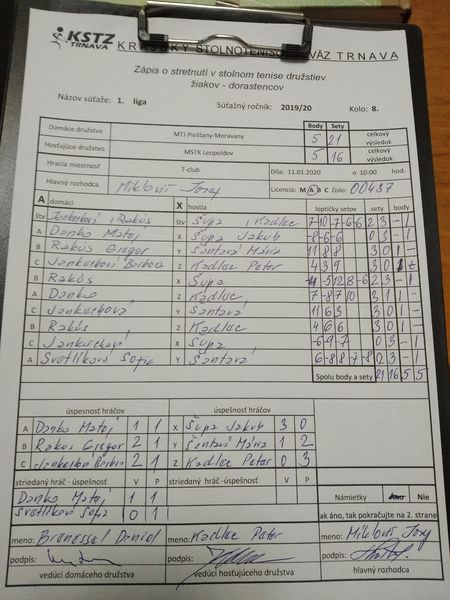 KSTZ
TRNAVA
KRAJSKÝ STOLNOTENIS VÄZ TRNAVA
Zápis o stretnutí v stolnom tenise družstiev
žiakov - dorastencov
Názov súťaže: 1. liga Súťažný ročník: 2019/20 Kolo: 8.
Domáce družstvo MTJ Piešťany-Moravany Body Sety celkový výsledok
5 21
Hosťujúce družstvo MSTK Leopoldov 5 16 celkový výsledok
Hracia miestnosť T-club Dňa: 11.01.2020 o 10.00 hod.
Hlavný rozhodca Mikloš Jozef Licencia: M A B C číslo: 00437
A domáci X hostia loptičky setov sety body
štv Jankechová i Rakús štv Šupa i Kadlec 7 -10 -7 -6 -6 2 3 - 1
A Danko Matej X Šupa Jakub -8 -6 -6 0 3 - 1
B Rakús Gregor Y Šantavá Mária 11 8 8 3 0 1 -
C Z Kadlec Peter 4 3 9 3 0 1
B Rakús X Šupa 2 3 - 1
A Danko Z Kadlec 7 -8 7 10 3 1 1 -
C Jankechová Y Šantavá 11 6 3 3 0 1 -
B Rakús Z Kadlec 4 6 6 3 0 1 -
C Jankechová X Šupa -6 -9 -7 0 3 - 1
A Svetlíková Sofia Y Šantavá 6 -8 8 -7 -8 2 3 - 1
Spolu body a sety 21 16 5 5
úspesnosť hráčov úspešnosť hráčov
A Danko Matej 1 1 X Šupa Jakub 3 0
B Rakus Gregor 2 1 Y Šantavá Mária 1 2
C 2 1 Z Kadlec Peter 0 3
striedaný hráč -úspešnosť V P striedaný hráč -úspešnosť V P
Danko Matej 1 1 Námietky Áno Nie
Svetlíková Sofia 0 1 ak áno, tak pokračujte na 2. strane
meno: Daniel meno: Kadlec Peter meno: Mikloš Jozef
podpis: podpis: podpis:
vedúci domáceho družstva vedúci hosťujúceho družstva hlavný rozhodca